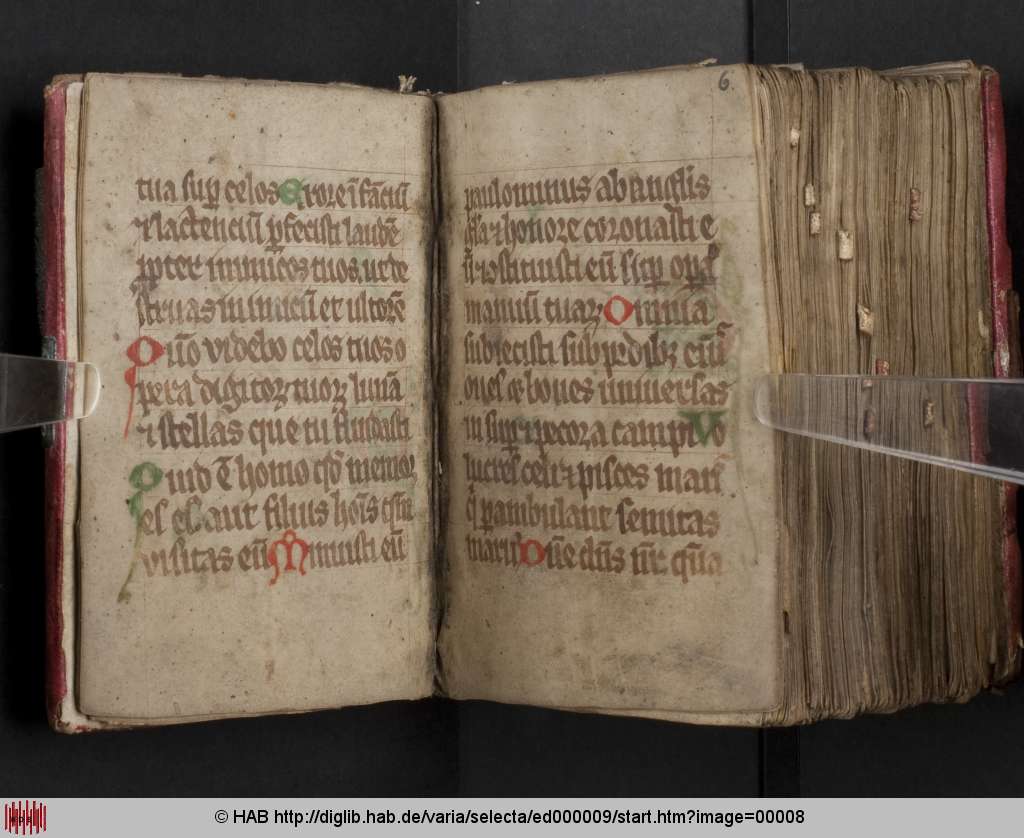 tua sup celos Ex ore īfanciū
⁊ lactenciū pfecisti laudē
ꝓpter inimicos tuos ut de
struas inimicū et ultorē
Quō videbo celos tuos o
pera digitoꝝ tuoꝝ lunā
⁊ stellas que tu fundasti
Quid ē homo qd memor
es eius aut filius hoīs qm̄
visitas eū Minuisti eū
paulominus ab anglis
gl̄ia ⁊ honore coronasti e
ū ⁊ ɔstituisti eū sup opa
manuū tuaꝝ Omnia
subiecisti sub pedibꝫ eiꝰ
oues ⁊ boues universas
insup ⁊ pecora campi Vo
lucres celi ⁊ pisces maris
q pambulant semitas
maris Dn̄e dn̄s nr̄ qm̄a
6.
© HAB http://diglib.hab.de/varia/selecta/ed000009/start.htm?image=00008